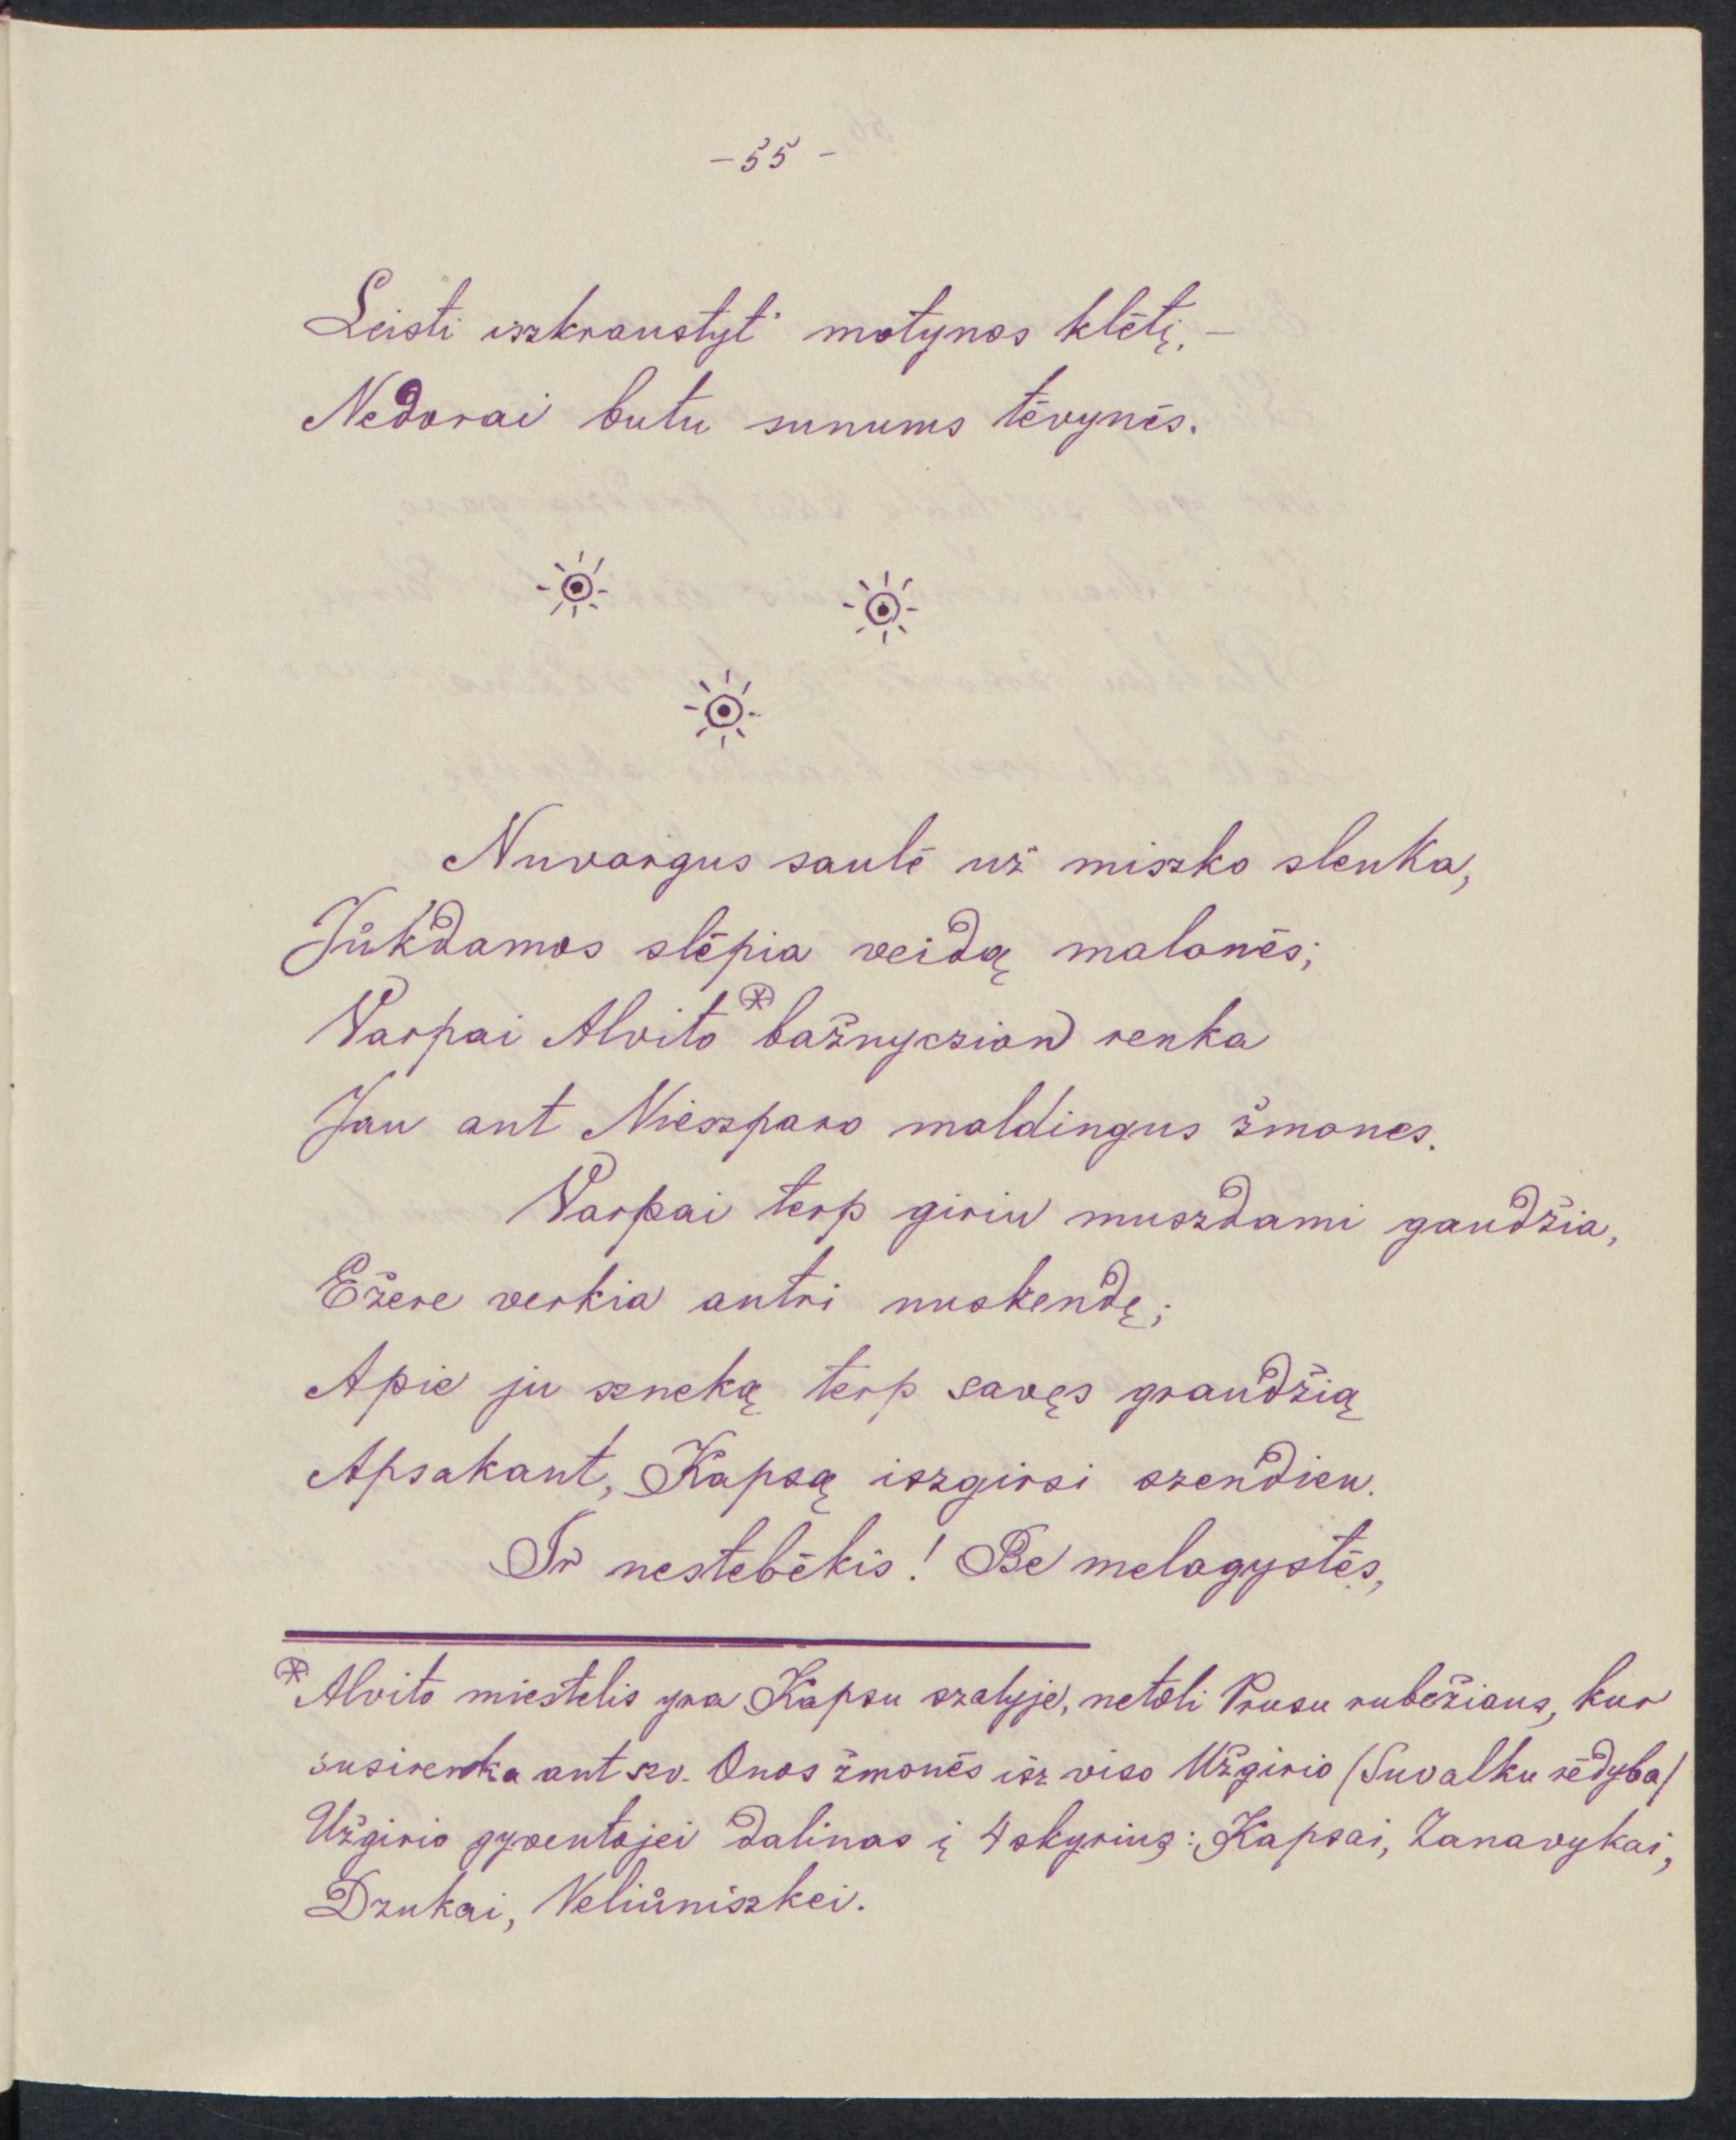 - 55 -
Leisti iszkraustyt' motynos klėtį, -
Nedorai butu sunums tėvynės.
Nuvargus saulė už miszko slenka,
Jůkdamos slėpia veidą malonės;
Varpai Alvito * bažnyczion renka
Jau ant Mieszparo maldingus žmones.
Varpai terp giriu muszdami gaudžia,
Ežere verkia antri nuskendę;
Apie ju szneką terp savęs graudžią
Apsakant, Kapsą iszgirsi szendien.
Ir nestebėkis! Be melagystės,
* Alvito miestelis yra Kapsu szalyje, netoli Prusu rubežiaus, kur
susirenka ant szv. Onos žmonės isz viso Užgirio /Suvalku rėdyba/
Užgirio gyventojei dalinas į 4 skyrius: Kapsai, Zanavykai,
Dzukai, Veliůniszkei.